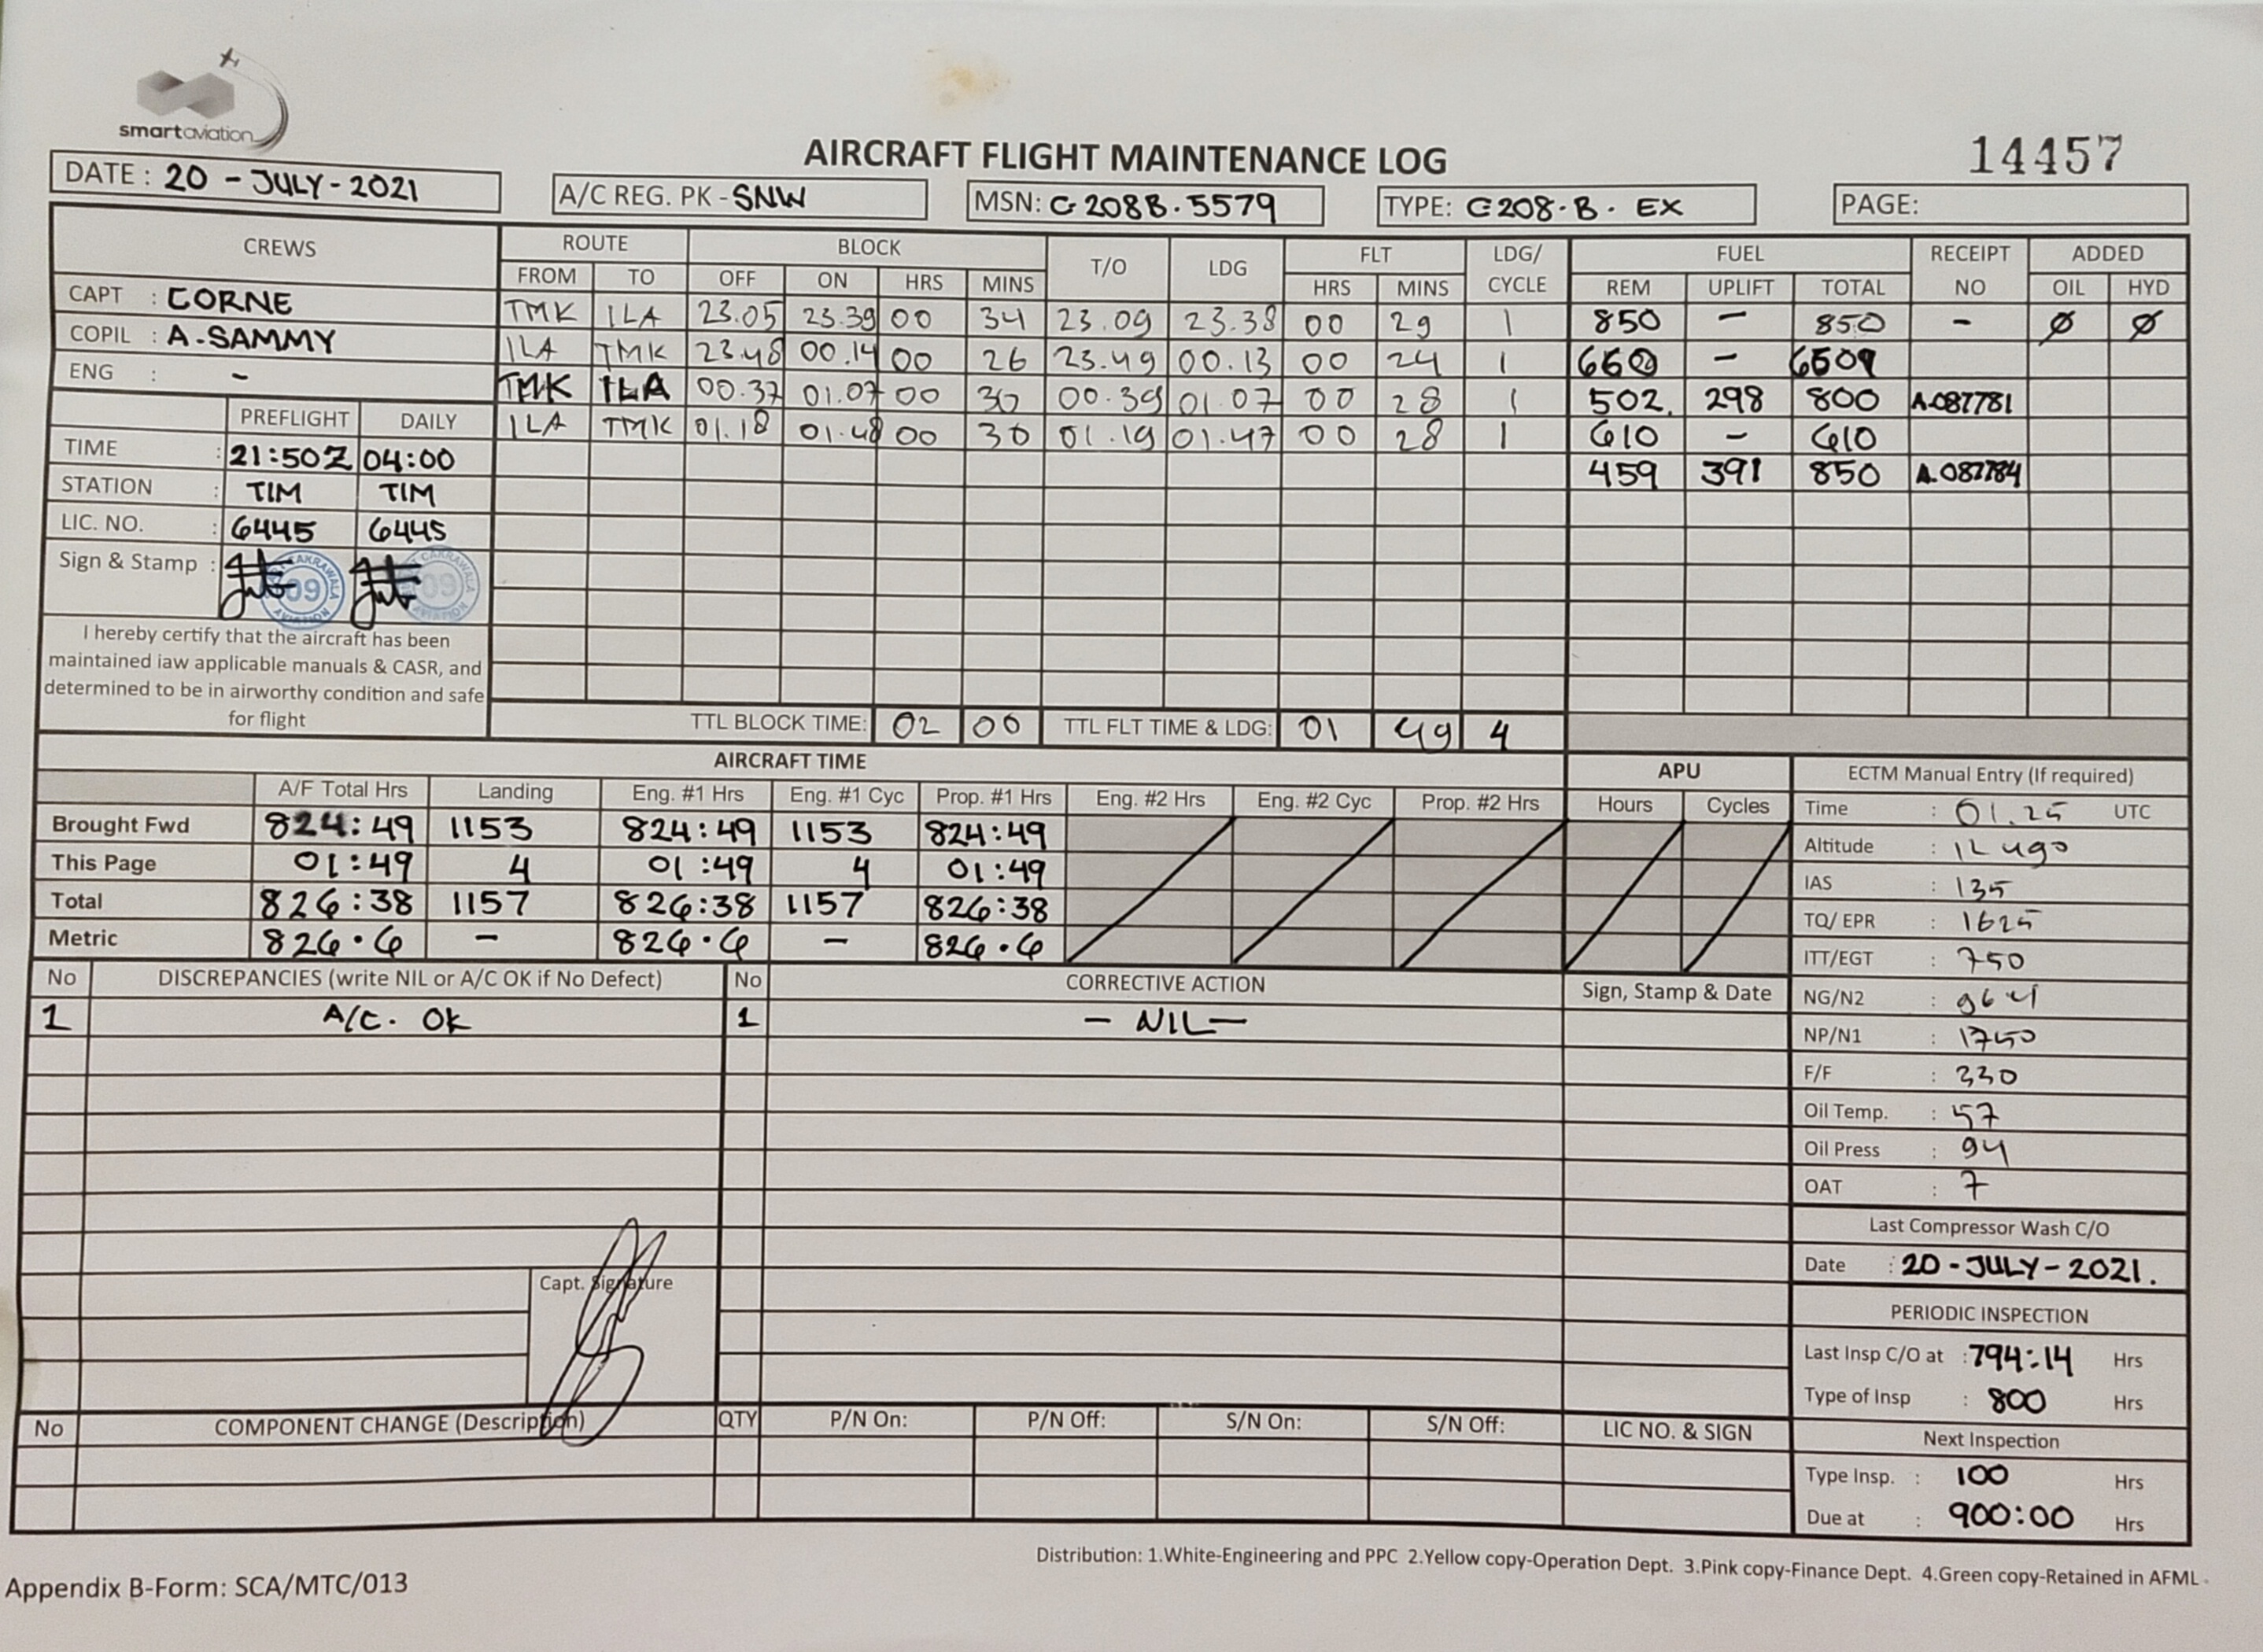 smartaviation
AIRCRAFT FLIGHT MAINTENANCE LOG
14457
DATE : 20 - JULY - 2021
A/C REG. PK - SNW
MSN: C208B.5579
TYPE: C208.B. EX
PAGE:
CREWS ROUTE BLOCK T/O LDG FLT LDG/ CYCLE FUEL RECEIPT NO ADDED
FROM TO OFF ON HRS MINS HRS MINS REM UPLIFT TOTAL OIL HYD
CAPT : CORNE
COPIL : A.SAMMY
ENG : -
TMK ILA 23.05 23.39 00 34 23.09 23.38 00 29 1 850 - 850 - Ø Ø
ILA TMK 23.48 00.14 00 26 23.49 00.13 00 24 1 660 -
TMK ILA 00.37 01.07 00 30 00.39 01.07 00 28 1 502. 298 800 A.087781
ILA TMK 01.18 01.48 00 30 01.19 01.47 00 28 1 610 - 610
459 391 850 A.087784
PREFLIGHT DAILY
TIME : 21:50Z 04:00
STATION : TIM TIM
LIC. NO. : 6445 6445
Sign & Stamp :
09 09
I hereby certify that the aircraft has been
maintained iaw applicable manuals & CASR, and
determined to be in airworthy condition and safe
for flight
TTL BLOCK TIME: 02 00 TTL FLT TIME & LDG: 01 49 4
AIRCRAFT TIME
A/F Total Hrs Landing Eng. #1 Hrs Eng. #1 Cyc Prop. #1 Hrs Eng. #2 Hrs Eng. #2 Cyc Prop. #2 Hrs
Brought Fwd 824:49 1153 824:49 1153 824:49
This Page 01:49 4 01:49 4 01:49
Total 826:38 1157 826:38 1157 826:38
Metric 826.6 - 826.6 - 826.6
APU
Hours Cycles
ECTM Manual Entry (If required)
Time : 01.25 UTC
Altitude : 12 490
IAS : 135
TQ/ EPR : 1625
ITT/EGT : 750
NG/N2 : 96 4
NP/N1 : 1750
F/F : 330
Oil Temp. : 57
Oil Press : 94
OAT : 7
Last Compressor Wash C/O
Date : 20 - JULY - 2021.
PERIODIC INSPECTION
Last Insp C/O at : 794:14 Hrs
Type of Insp : 800 Hrs
Next Inspection
Type Insp. : 100 Hrs
Due at : 900:00 Hrs
No DISCREPANCIES (write NIL or A/C OK if No Defect) No CORRECTIVE ACTION Sign, Stamp & Date
1 A/C. OK 1 - NIL -
Capt. Signature
No COMPONENT CHANGE (Description) QTY P/N On: P/N Off: S/N On: S/N Off: LIC NO. & SIGN
Distribution: 1.White-Engineering and PPC 2.Yellow copy-Operation Dept. 3.Pink copy-Finance Dept. 4.Green copy-Retained in AFML
Appendix B-Form: SCA/MTC/013